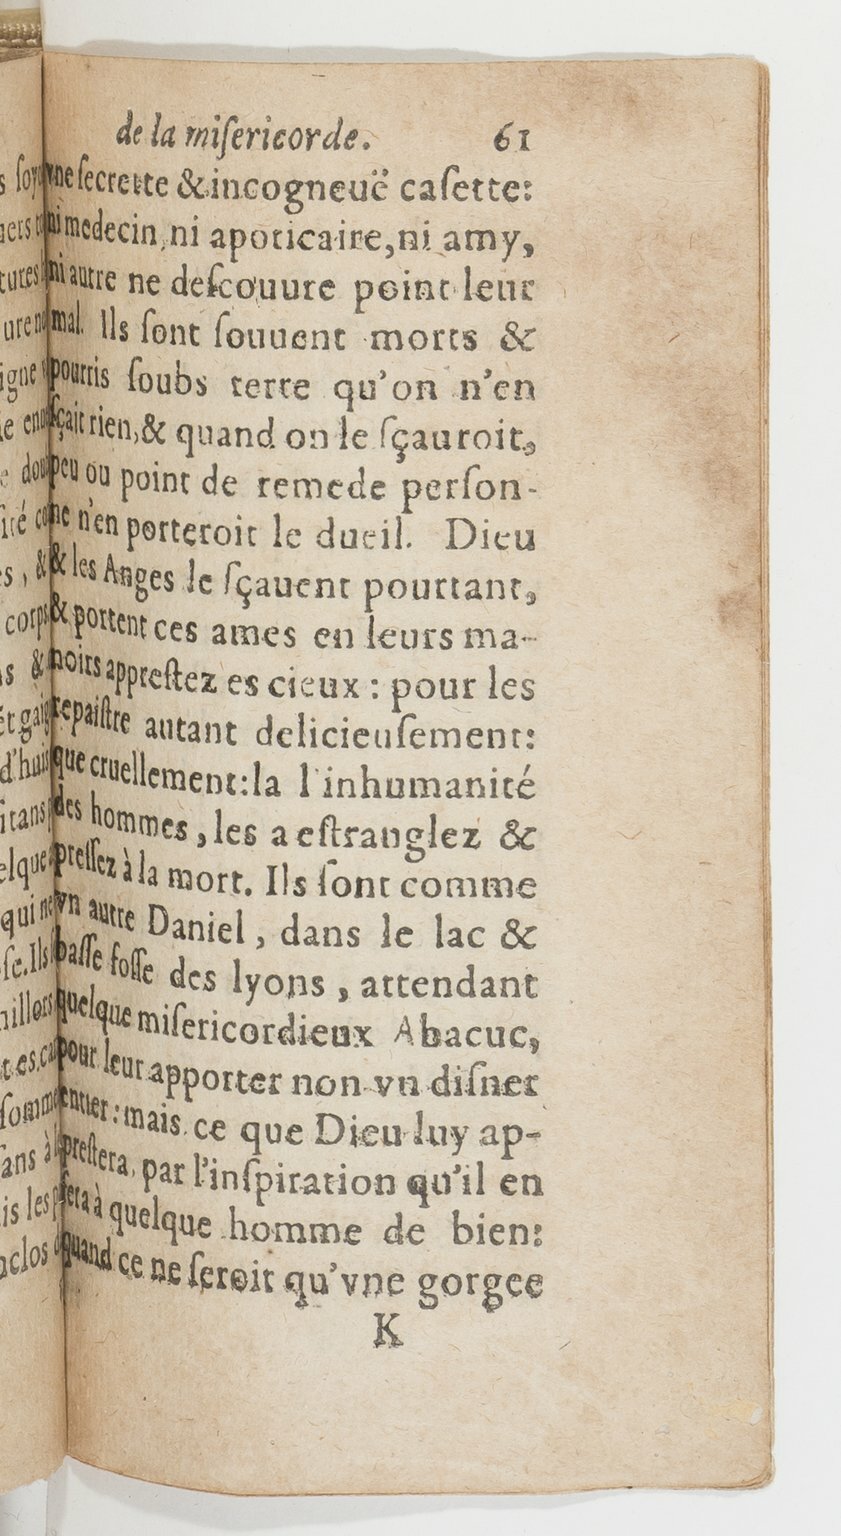 de la miſericorde. 61
vne ſecrette & incogneuë caſette:
ni medecin, ni apoticaire, ni amy,
ni autre ne deſcouure point leur
mal. Ils ſont ſouuent morts &
pourris ſoubs terre qu'on n'en
ſçait rien, & quand on le ſçauroit,
peu ou point de remede perſon-
ne n'en porteroit le dueil. Dieu
& les Anges le ſçauent pourtant,
& portent ces ames en leurs ma-
noirs appreſtez es cieux : pour les
repaiſtre autant delicieuſement:
que cruellement: la l'inhumanité
des hommes, les a eſtranglez &
preſſez à la mort. Ils ſont comme
vn autre Daniel, dans le lac &
baſſe foſſe des lyons, attendant
quelque miſericordieux Abacuc,
pour leur apporter non vn diſner
entier: mais ce que Dieu luy ap-
preſtera, par l'inſpiration qu'il en
fera à quelque homme de bien:
quand ce ne ſeroit qu'vne gorgee
K